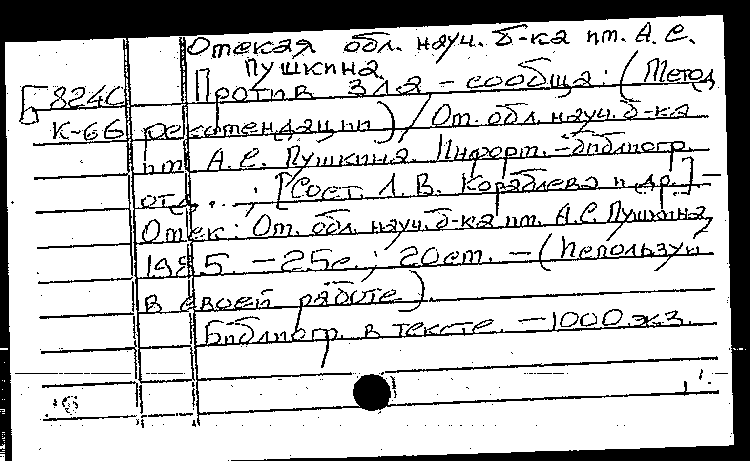 Омская обл. науч. б-ка им. А.С.
Пушкина
Б 824С Против зла – сообща: (Метод
К-66 рекомендации) / Ом. обл. науч. б-ка
им. А.С. Пушкина. Информ.-библиогр.
отд...; [Сост. Л. В. Кораблева и др.] –
Омск: Ом. обл. науч. б-ка им. А.С. Пушкина,
1985. – 25с.; 20см. – (Используй
в своей работе).
Библиогр. в тексте. – 1000 экз.